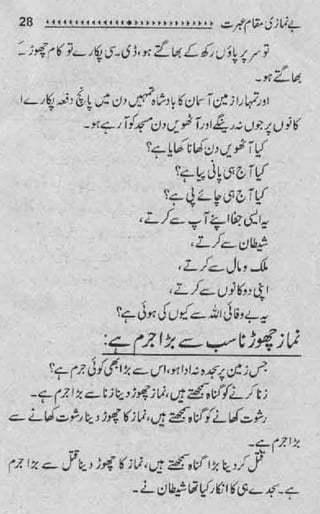 بے نمازی مقام عبرت 28
تو سر پر پاؤں رکھ کے بھاگتے ہو، ڈی۔سی پکارے تو کام چھوڑ کے
بھاگتے ہو۔
اور تمہارا زمین آسمان کا بادشاہ تمہیں دن میں پانچ دفعہ پکارے!
کانوں پر جوں نہ رینگے اور آٹھویں دن مسجد کو آ رہے ہو۔
کیا آٹھویں دن کھانا کھایا ہے؟
کیا آج ہی پانی پیا ہے؟
کیا آج ہی چائے پی ہے؟
یہ ایسی جفا اپنے آپ سے کرتے،
شیطان سے کرتے،
ملک و مال سے کرتے،
اپنی دوکانوں سے کرتے،
یہ بے وفائی اللہ سے کیوں کی ہوئی ہے؟
نماز چھوڑنا سب سے بڑا جرم ہے:
جس زمین پر سجدہ نہ ادا ہو، اس سے بڑا بھی کوئی جرم ہے؟
زنا کرنے کو گناہ سمجھتے ہیں، نماز چھوڑ دینا زنا سے بڑا جرم ہے۔
رشوت کھانے کو گناہ سمجھتے ہیں، نماز کا چھوڑ دینا رشوت کھانے سے
بڑا جرم ہے۔
قتل کر دینا بڑا گناہ سمجھتے ہیں، نماز کا چھوڑ دینا قتل سے بڑا جرم
ہے۔ سجدے ہی کا انکار کیا تھا شیطان نے۔